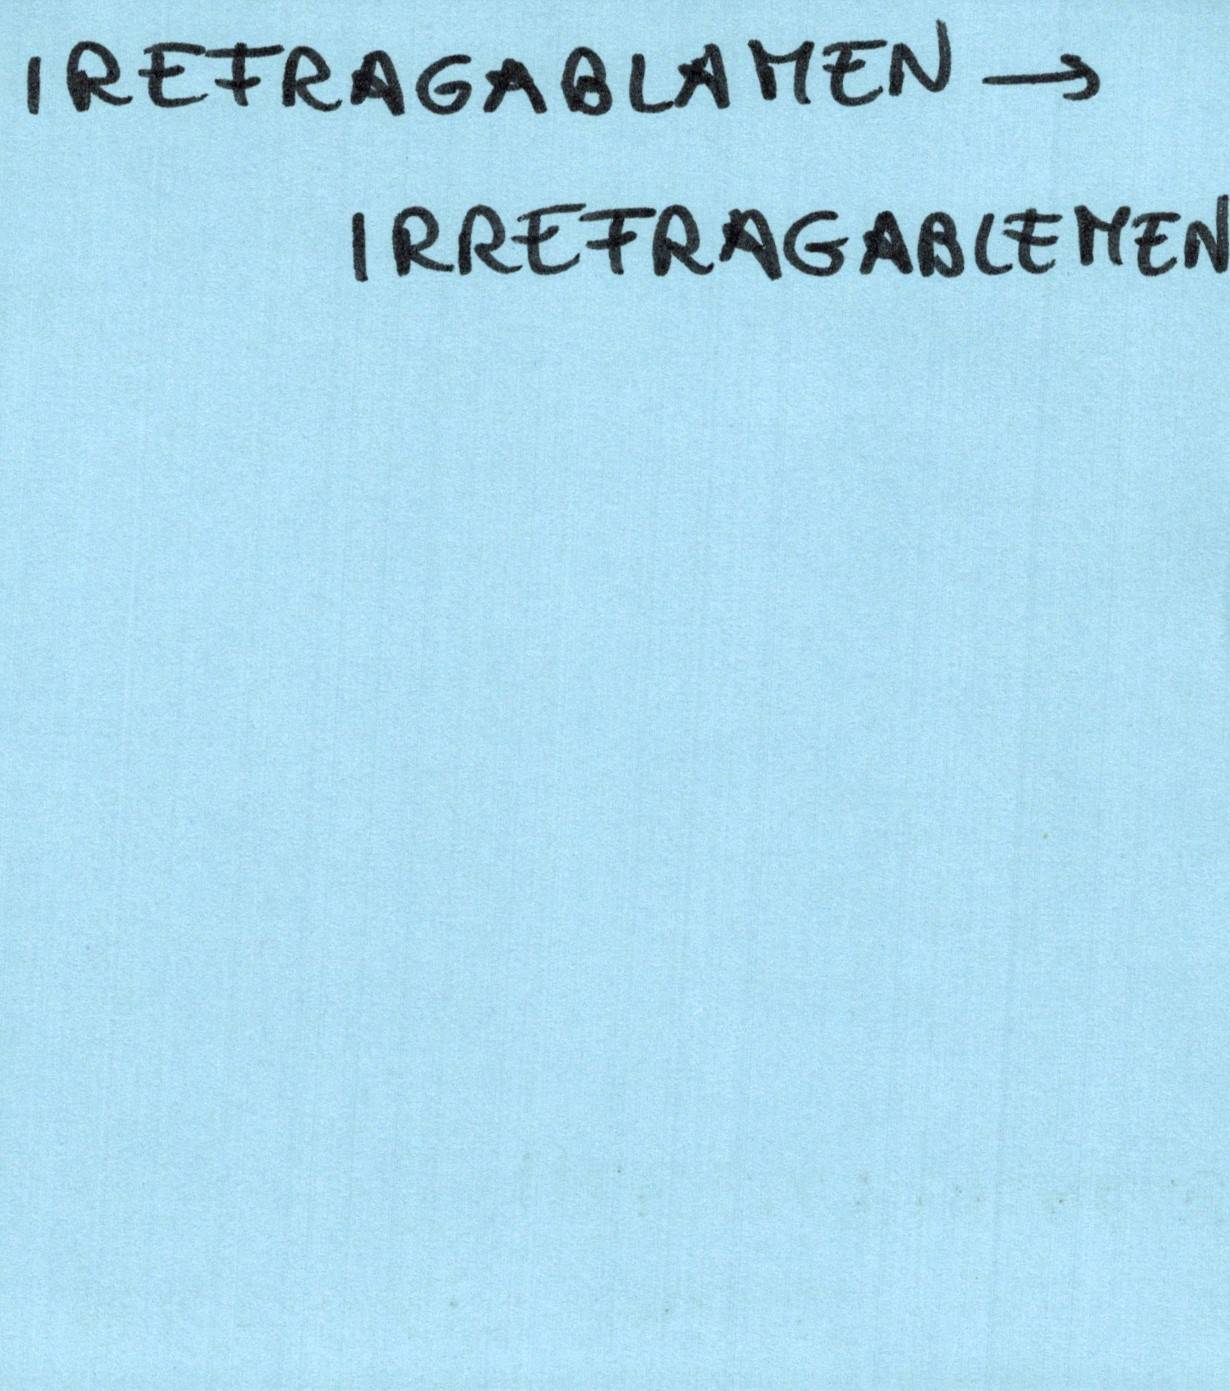 IREFRAGABLAMEN →
IRREFRAGABLEMEN